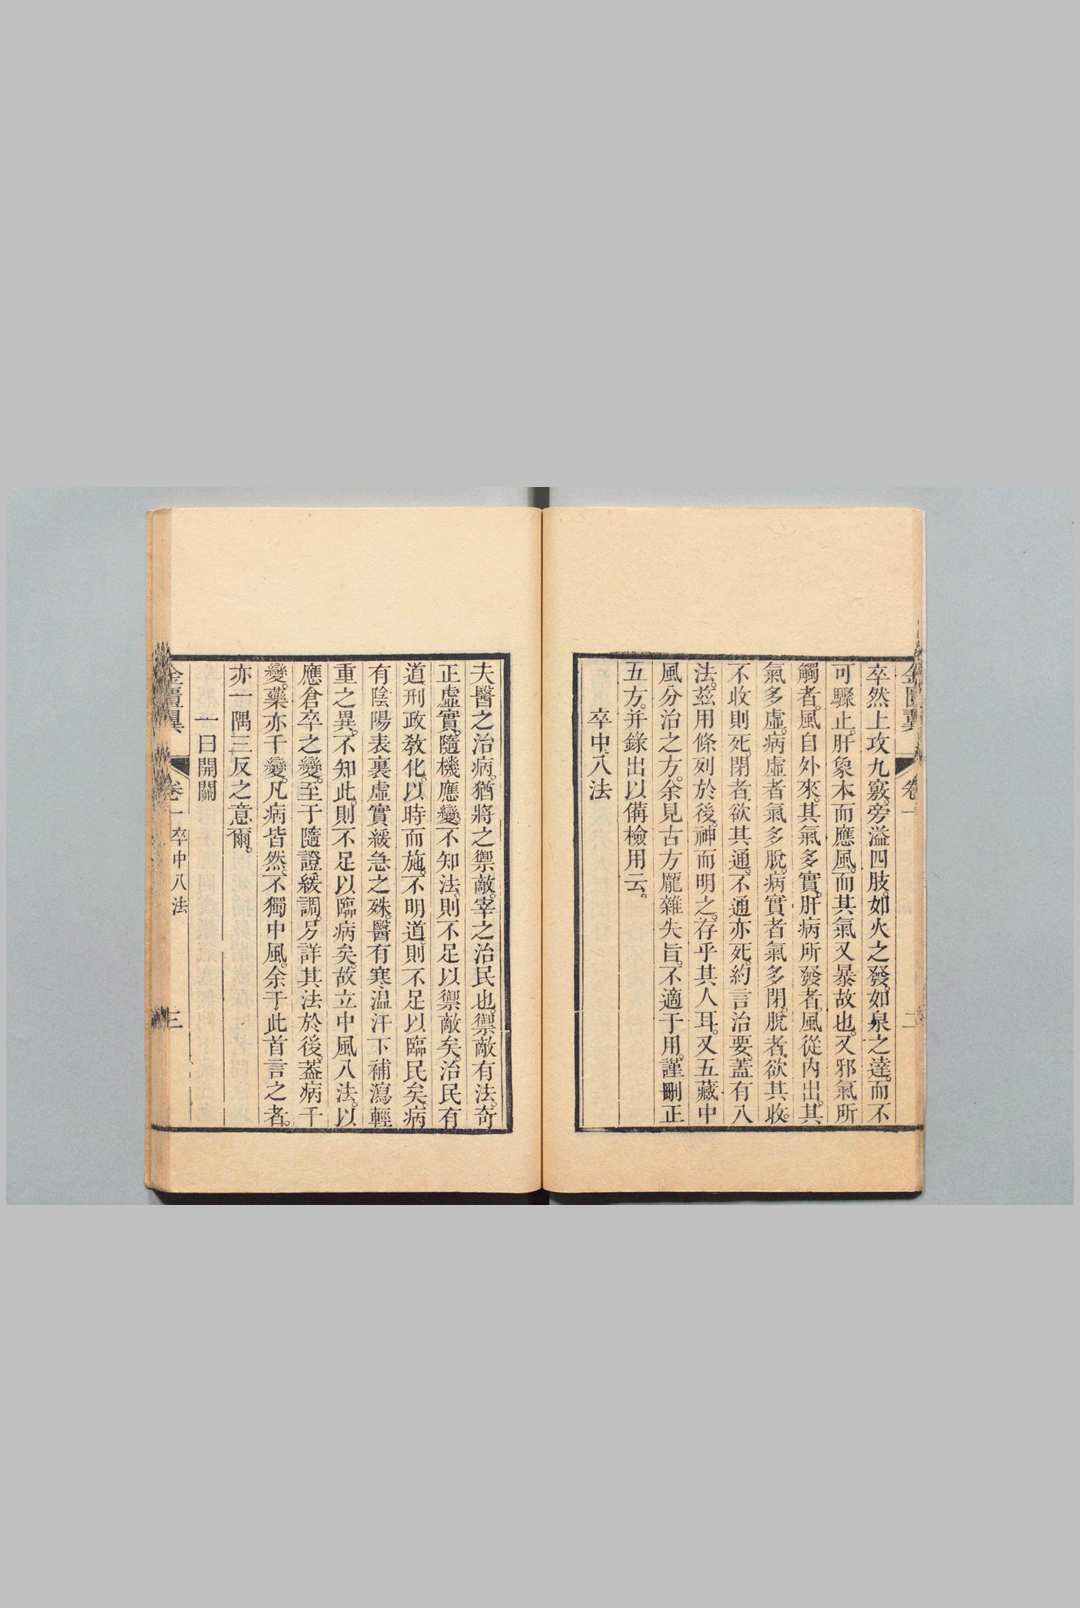 金匱翼 卷一 二
卒然上攻九竅。旁溢四肢。如火之發。如泉之達。而不
可驟止。肝象木而應風。而其氣又暴故也。又邪氣所
觸者。風自外來。其氣多實。肝病所發者。風從內出。其
氣多虛。病虛者氣多脫。病實者氣多閉。脫者欲其收。
不收則死。閉者欲其通。不通亦死。約言治要。蓋有八
法。茲用條列於後。神而明之。存乎其人耳。又五藏中
風分治之方。余見古方龐雜失旨。不適于用。謹刪正
五方。并錄出以備檢用云。
卒中八法
夫醫之治病。猶將之禦敵。宰之治民也。禦敵有法。奇
正虛實。隨機應變。不知法。則不足以禦敵矣。治民有
道。刑政教化。以時而施。不明道。則不足以臨民矣。病
有陰陽表裏虛實緩急之殊。醫有寒溫汗下補瀉輕
重之異。不知此。則不足以臨病矣。故立中風八法。以
應倉卒之變。至于隨證緩調。另詳其法於後。葢病千
變。藥亦千變。凡病皆然。不獨中風。余于此首言之者。
亦一隅三反之意爾。
一曰開關
金匱翼 卷一 卒中八法 三